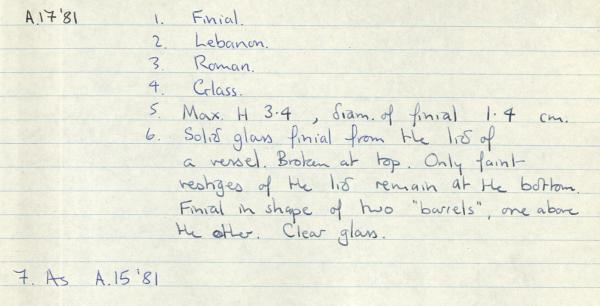 A.17'81 1. Finial.
2. Lebanon.
3. Roman.
4. Glass.
5. Max. H 3.4 , diam. of finial 1.4 cm.
6. Solid glass finial from the lid of
a vessel. Broken at top. Only faint
vestiges of the lid remain at the bottom.
Finial in shape of two "barrels", one above
the other. Clear glass.
7. As A.15'81